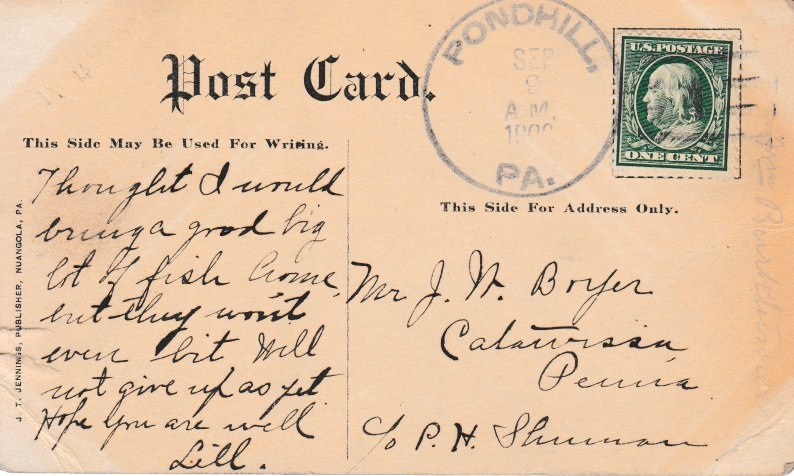 Post Card.
PONDHILL,
SEP
9
A.M.
PA.
U.S. POSTAGE
ONE CENT
This Side May Be Used For Writing.
This Side For Address Only.
Thought I would
bring a good big
lot of fish home,
but they won't
even bit Will
not give up as yet
Hope you are well
Lill.
Mr J. W. Boyer
Catawissa
Penna
c/o P. H. Shuman
J. T. JENNINGS, PUBLISHER, NUANGOLA, PA.